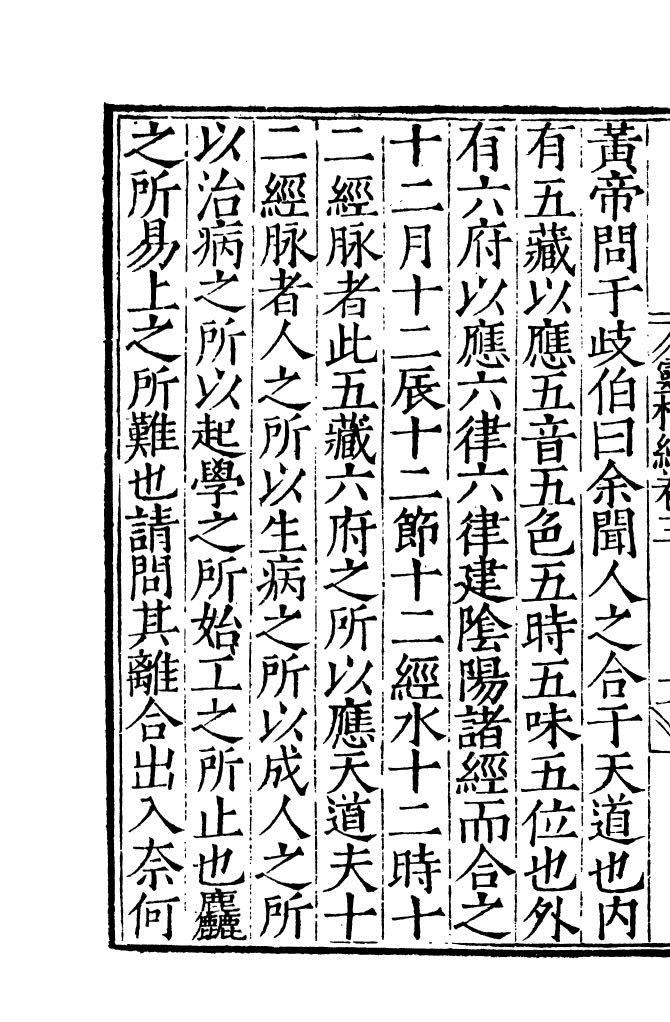 黃帝問于歧伯曰余聞人之合于天道也内
有五藏以應五音五色五時五味五位也外
有六府以應六律六律建隂陽諸經而合之
十二月十二辰十二節十二經水十二時十
二經脉者此五藏六府之所以應天道夫十
二經脉者人之所以生病之所以成人之所
以治病之所以起學之所始工之所止也麤
之所易上之所難也請問其離合出入奈何